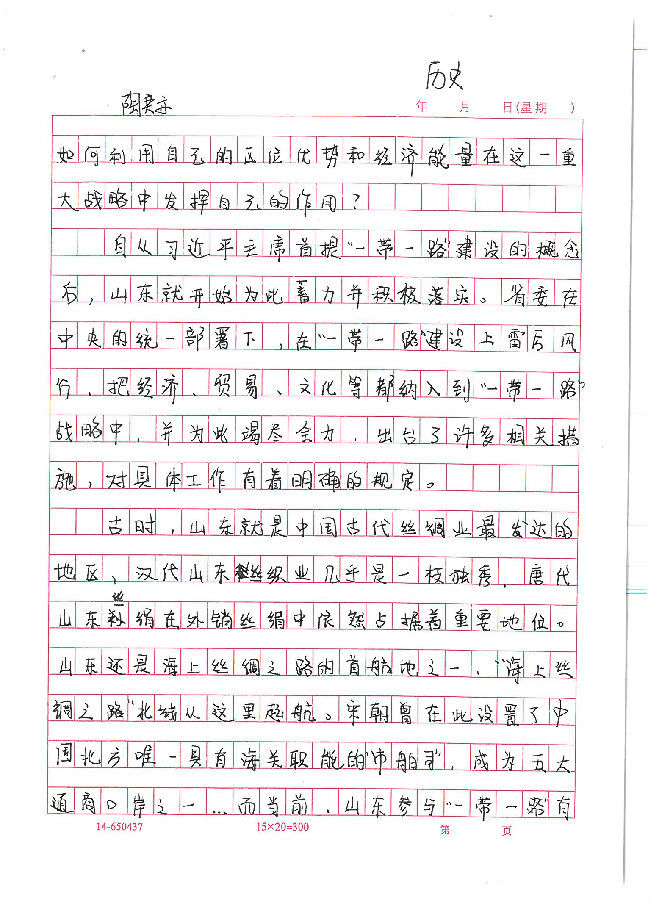 历史
陶
年 月 日(星期 )
如何利用自己的区位优势和经济能量在这一重
大战略中发挥自己的作用？
自从习近平主席首提“一带一路”建设的概念
后，山东就开始为此蓄力并积极落实。省委在
中央的统一部署下，在“一带一路”建设上雷厉风
行，把经济、贸易、文化等都纳入到“一带一路”
战略中，并为此竭尽全力，出台了许多相关措
施，对具体工作有着明确的规定。
古时，山东就是中国古代丝绸业最发达的
地区，汉代山东丝织业几乎是一枝独秀，唐代
山东丝绢在外销丝绢中依然占据着重要地位。
山东还是海上丝绸之路的首航地之一，“海上丝
绸之路”北线从这里起航。宋朝曾在此设置了中
国北方唯一具有海关职能的“市舶司”，成为五大
通商口岸之一…而当前，山东参与“一带一路”有
14-650437 15×20=300 第 页